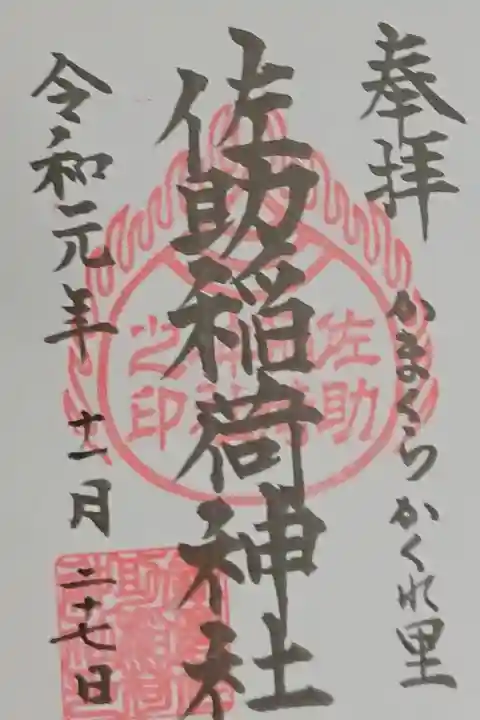 奉拝
かまくらかくれ里
佐助稲荷神社
令和元年十一月二十七日
佐助
之印